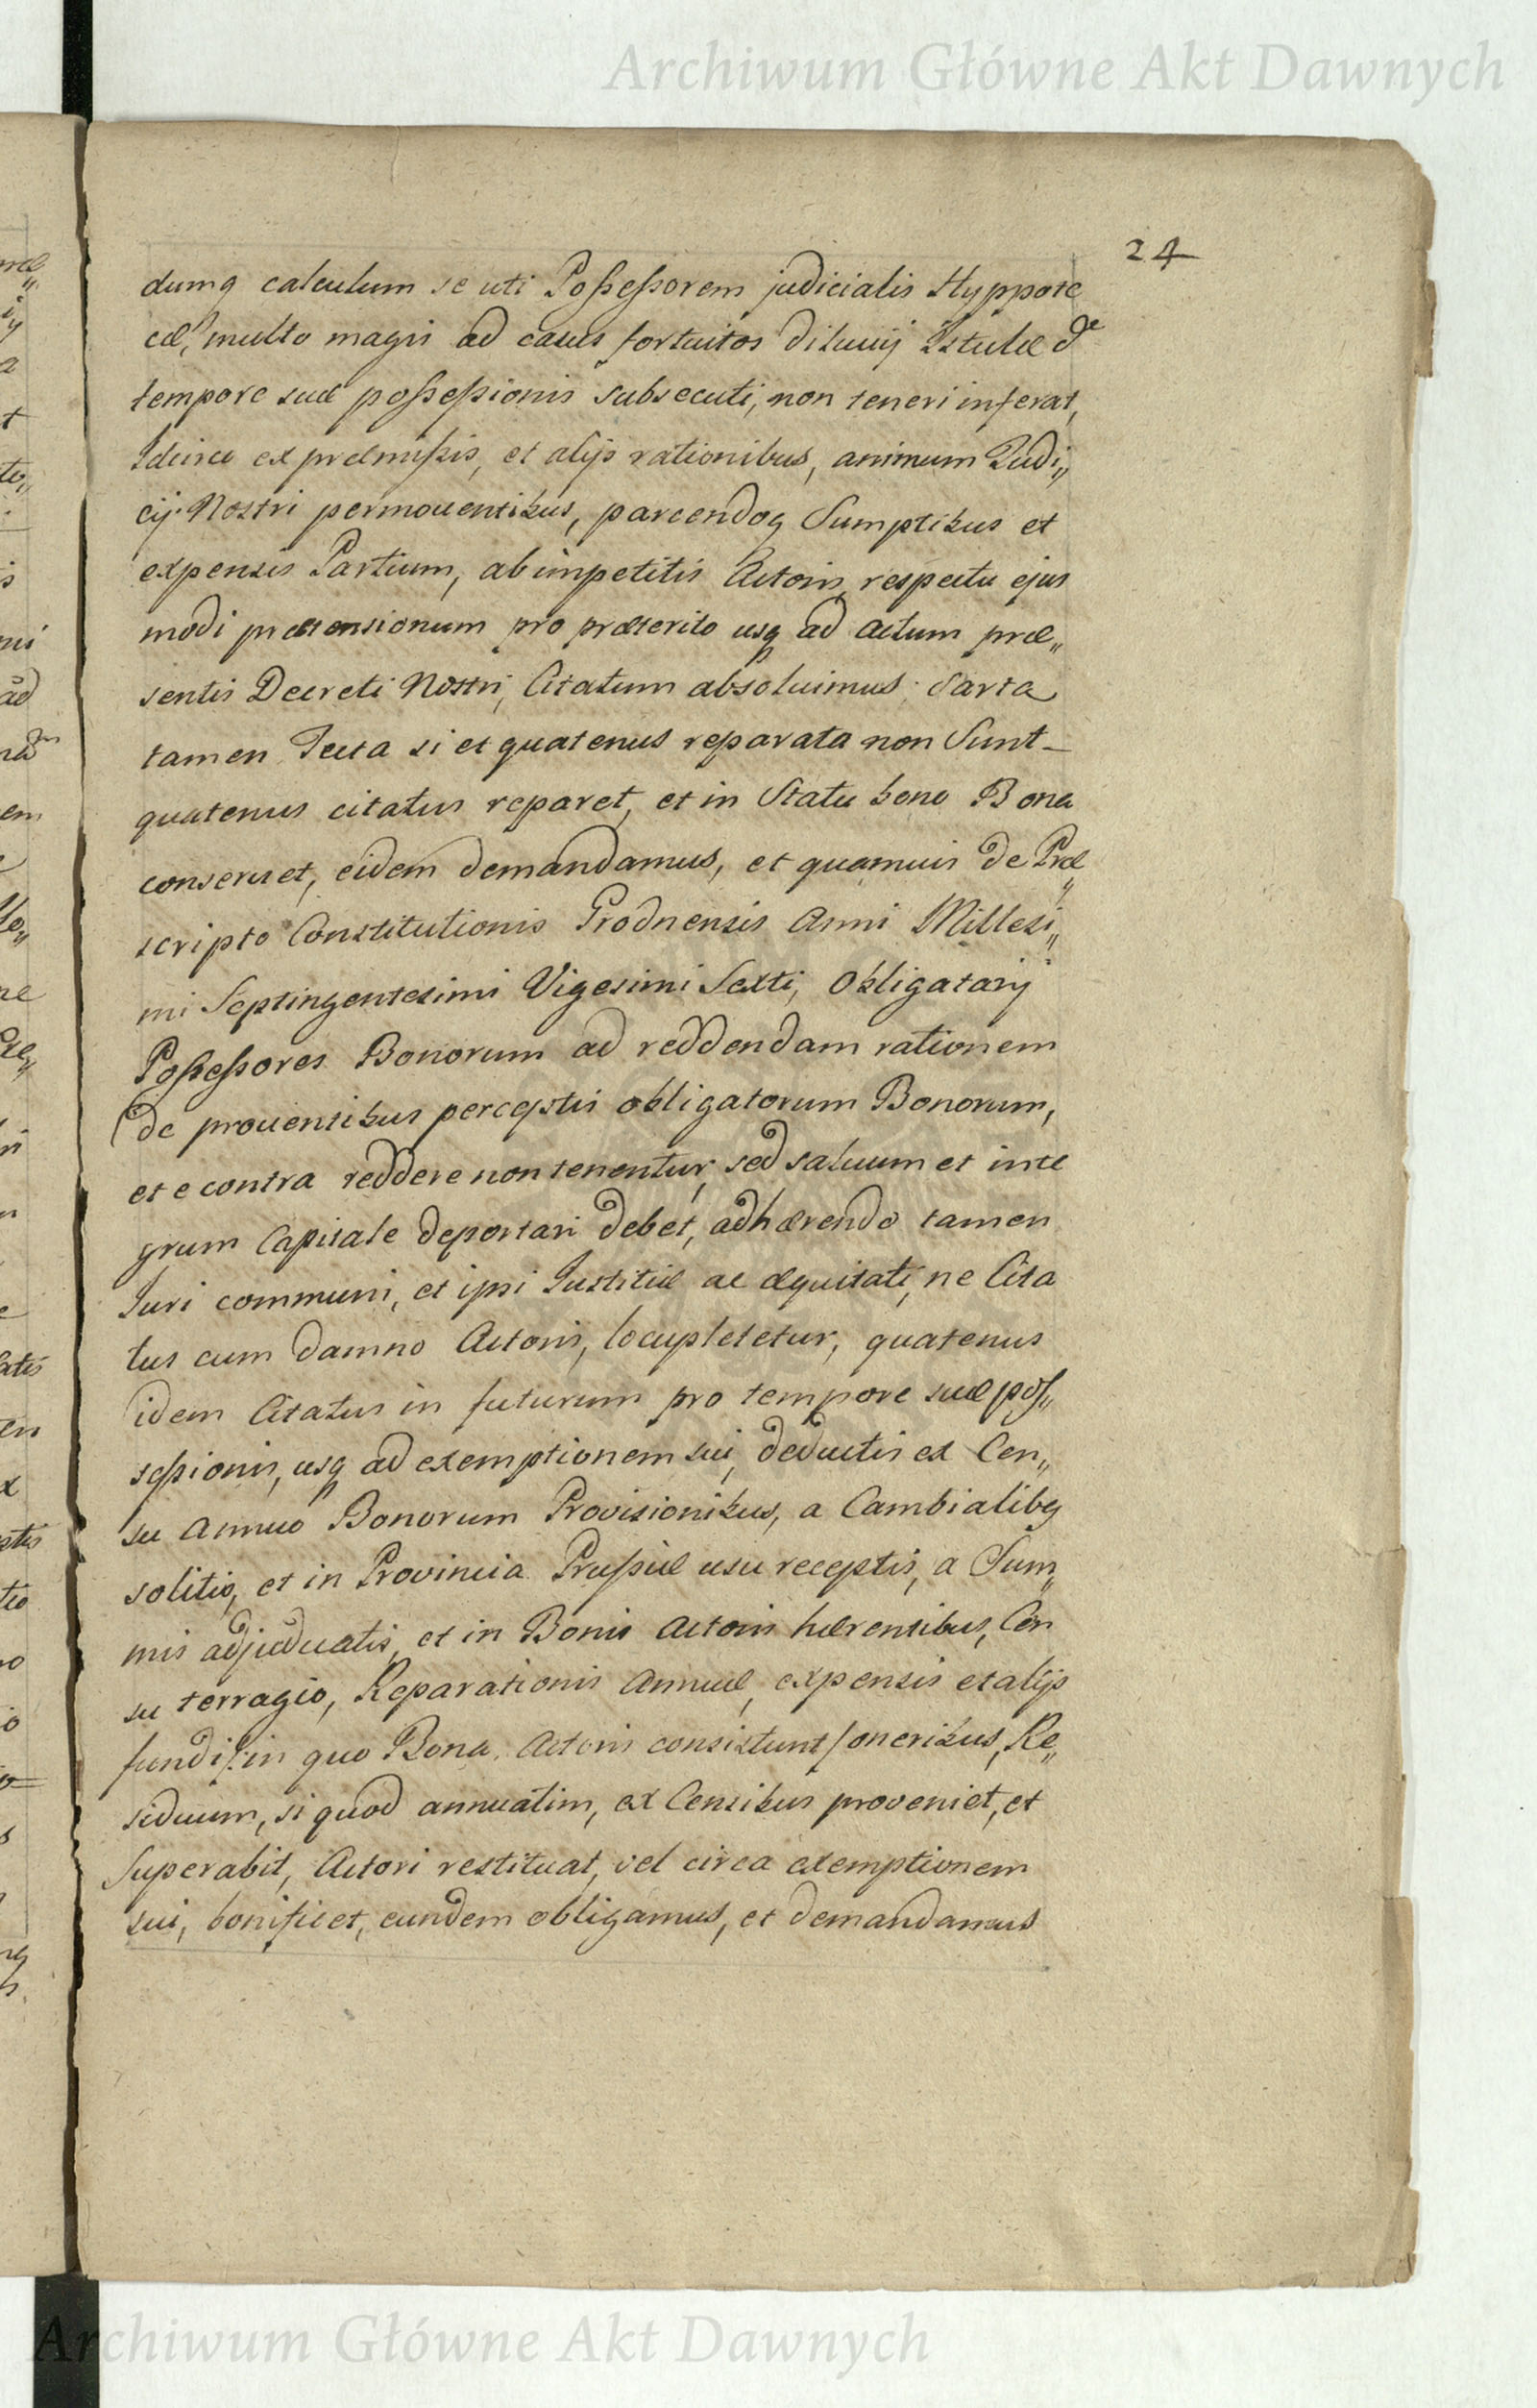 Archiwum Główne Akt Dawnych
24
dumq calculum se uti Possessorem judicialis Hyppote
cæ, multo magis ad casus fortuitos Diluvij Istulæ de
tempore suæ possessionis subsecuti, non teneri inferat,
Idcirco ex præmissis, et alijs rationibus, animum Judi„
cij Nostri permouentibus, parcendoq Sumptibus et
expensis Partium, ab impetitis Actoris respectu ejus
modi prætensionum pro præterito usq ad actum præ„
sentis Decreti Nostri, Citatum absoluimus. Sarta
tamen Tecta si et quatenus reparata non Sunt
quatenus citatus reparet, et in Statu bono Bona
conseruet, eidem demandamus, et quamuis de Præ„
scripto Constitutionis Grodnensis Anni Millesi„
mi Septingentesimi Vigesimi Sexti, Obligatarij
Possessores Bonorum ad reddendam rationem
de prouentibus perceptis obligatorum Bonorum,
et e contra reddere non tenentur, sed saluum et inte
grum Capitale deportari debet, adhærendo tamen
Juri communi, et ipsi Justitiæ ac æquitati, ne Cita
tus cum damno Actoris, locupletetur, quatenus
idem Citatus in futurum pro tempore suæ pos„
sessionis, usq ad exemptionem sui, deductis ex Cen„
su Annuo Bonorum Provisionibus, a Cambialibq
solitis, et in Provincia Prussiæ usu receptis, a Sum„
mis adjudicatis, et in Bonis Actoris hærentibus, Cen
su terragio, Reparationis Annuæ, expensis et alijs
fundi /: in quo Bona Actoris consistunt / oneribus, Re„
siduum, si quod annuatim, ex Censibus proveniet, et
Superabit, Actori restituat, vel circa exemptionem
sui, bonificet, eundem obligamus, et demandamus
Archiwum Główne Akt Dawnych